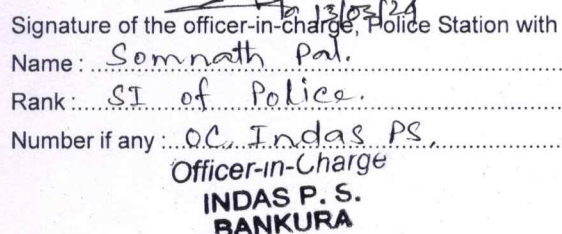 13/03/24
Signature of the officer-in-charge, Police Station with
Name : Somnath Pal.
Rank : SI of Police.
Number if any : OC, Indas PS,
Officer-in-Charge
INDAS P. S.
BANKURA